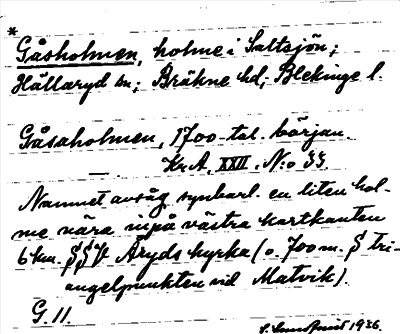 *
Gåsholmen, holme i Saltsjön;
Hällaryd sn; Bräkne hd, Blekinge l.
Gåsaholmen, 1700-tal. början.
Kr.A. XXII. N:o 33
Namnet avsåg synbarl. en liten hol-
me nära inpå västra kartkanten
6 km. Åryds kyrka (o. 700 m. tri-
angelpunkten vid Matvik).
G. 11.
1936.